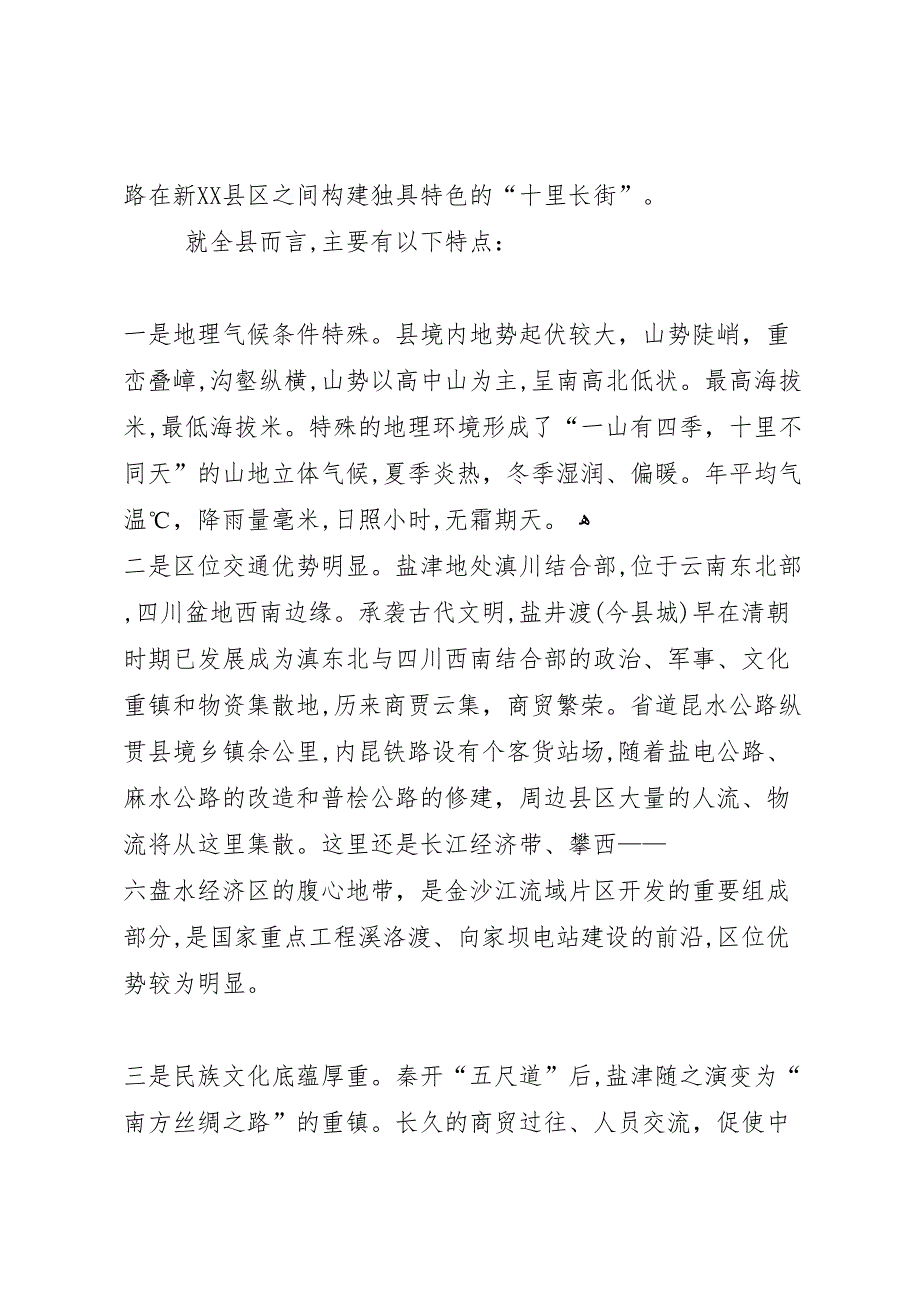 路在新XX县区之间构建独具特色的“十里长街”。
就全县而言,主要有以下特点:
一是地理气候条件特殊。县境内地势起伏较大，山势陡峭，重
峦叠嶂,沟壑纵横,山势以高中山为主,呈南高北低状。最高海拔
米,最低海拔米。特殊的地理环境形成了“一山有四季，十里不
同天”的山地立体气候,夏季炎热，冬季湿润、偏暖。年平均气
温℃，降雨量毫米,日照小时,无霜期天。 ﻫ
二是区位交通优势明显。盐津地处滇川结合部,位于云南东北部
,四川盆地西南边缘。承袭古代文明,盐井渡(今县城)早在清朝
时期已发展成为滇东北与四川西南结合部的政治、军事、文化
重镇和物资集散地,历来商贾云集，商贸繁荣。省道昆水公路纵
贯县境乡镇余公里,内昆铁路设有个客货站场,随着盐电公路、
麻水公路的改造和普桧公路的修建，周边县区大量的人流、物
流将从这里集散。这里还是长江经济带、攀西——
六盘水经济区的腹心地带，是金沙江流域片区开发的重要组成
部分,是国家重点工程溪洛渡、向家坝电站建设的前沿,区位优
势较为明显。
三是民族文化底蕴厚重。秦开“五尺道”后,盐津随之演变为“
南方丝绸之路”的重镇。长久的商贸过往、人员交流，促使中